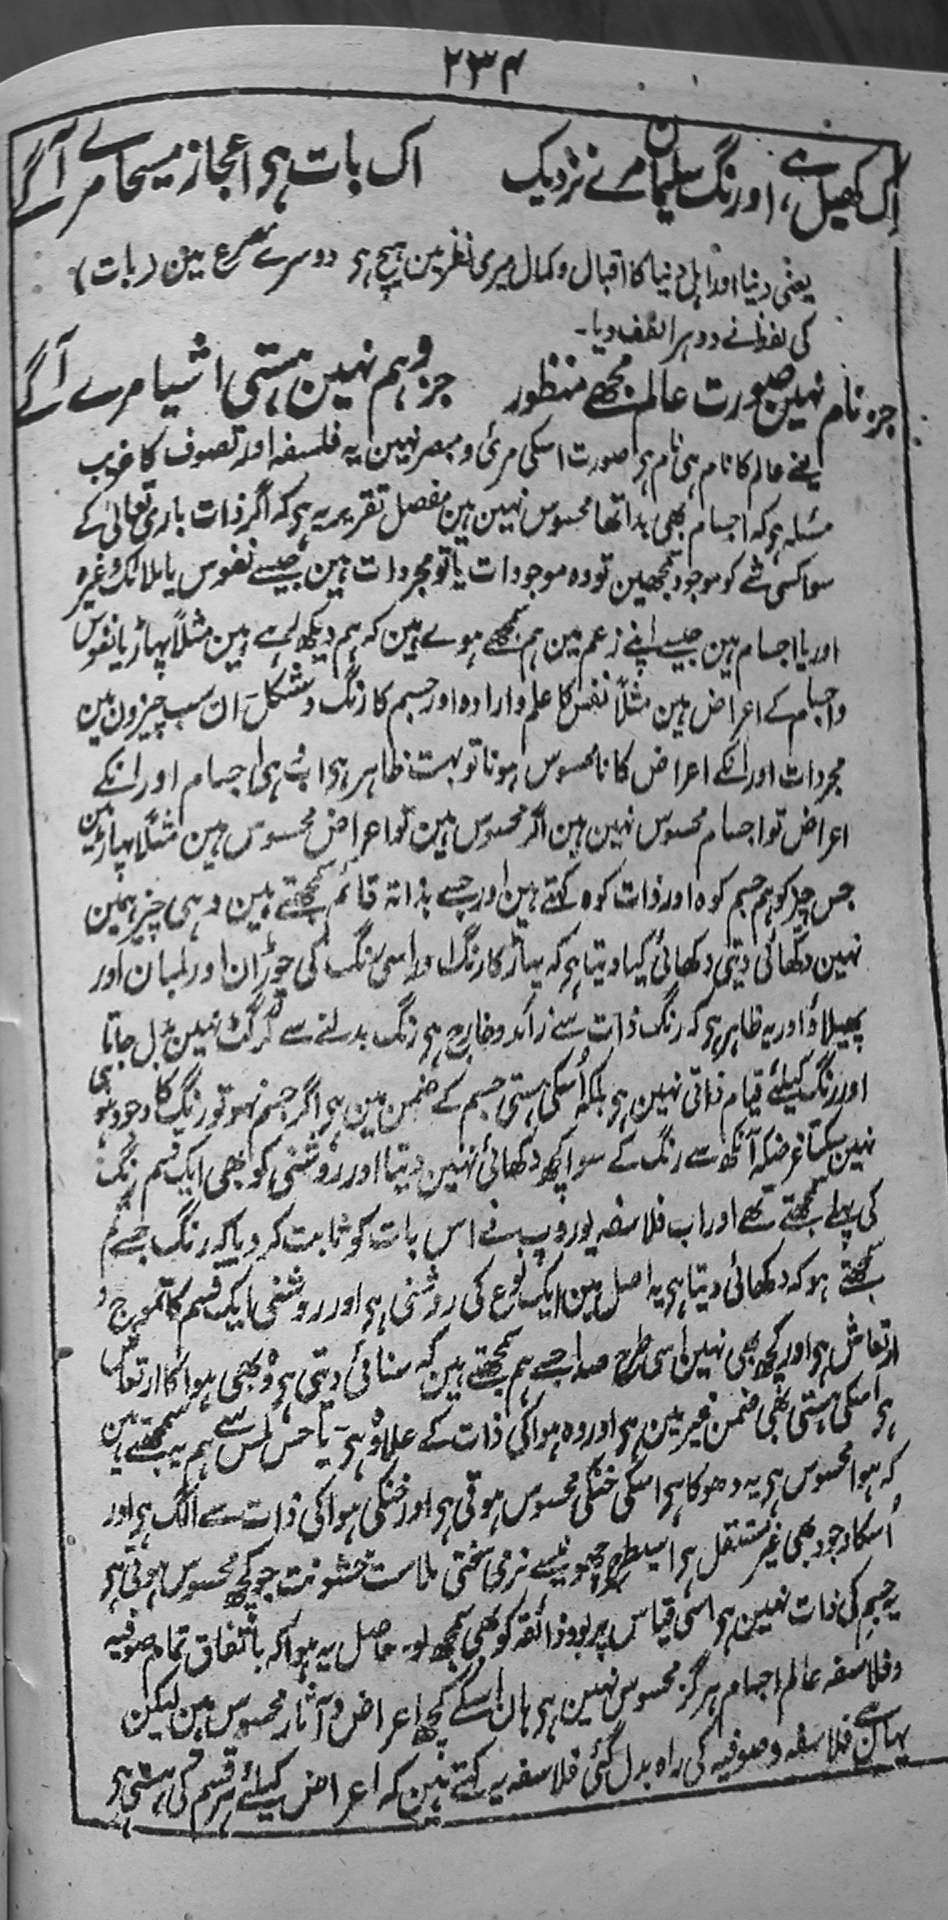 ۲۳۴
اک کھیل ہے، اورنگ سلیماں مرے نزدیک اک بات ہی اعجاز مسیحا مرے آگے
یعنی دنیا اور اہل دنیا کا اقبال و کمال میری نظر مین ہیچ ہی دوسرے مصرع مین (بات)
کی لفظ نے دوہرا لطف دیا۔
جز نام نہین صورت عالم مجھے منظور جز وہم نہین ہستی اشیا مرے آگے
یعنے عالم کا نام ہی نام ہی صورت اسکی مرئی و مبصر نہین یہ فلسفہ اور تصوف کا غریب
مسئلہ ہی کہ اجسام بھی بذاتہا محسوس نہین ہین مفصل تقریر یہ ہی کہ اگر ذات باری تعالی کے
سوا کسی شے کو موجود سمجھین تو وہ موجودات یا تو مجردات ہین جیسے نفوس یا ملائک وغیرہ
اور یا اجسام ہین جیسے اپنے زعم مین ہم سمجھے ہوے ہین کہ ہم دیکھ رہے ہین مثلاً پہاڑ یا نفوس
و اجسام کے اعراض ہین مثلاً نفس کا علم و ارادہ اور جسم کا رنگ و شکل۔ ان سب چیزون مین
مجردات اور انکے اعراض کا نامحسوس ہونا تو بہت ظاہر ہی اب رہے اجسام اور انکے
اعراض تو اجسام محسوس نہین ہین اگر محسوس ہین تو اعراض محسوس ہین مثلاً پہاڑ مین
جس چیز کو ہم جسم کوہ اور ذات کوہ کہتے ہین اور جسے بذاتہ قائم سمجھتے ہین وہی چیز ہمین
نہین دکھائی دیتی دکھائی کیا دیتا ہی کہ پہاڑ کا رنگ اور اسی رنگ کی چوڑان اور لمبان اور
پھیلاؤ اور یہ ظاہر ہی کہ رنگ ذات سے زائد و خارج ہی رنگ بدلنے سے گرگٹ نہین بدل جاتا
اور رنگ کیلئے قیام ذاتی نہین ہی بلکہ اُسکی ہستی جسم کے ضمن مین ہی اگر جسم نہو تو رنگ کا وجود بھی ہو
نہین سکتا غرضکہ آنکھ سے رنگ کے سوا کچھ دکھائی نہین دیتا اور روشنی کو بھی ایک قسم رنگ
کی پہلے سمجھتے تھے اور اب فلاسفہ یوروپ نے اس بات کو ثابت کر دیا کہ رنگ جسے تم
سمجھتے ہو کہ دکھائی دیتا ہی یہ اصل مین ایک نوع کی روشنی ہی اور روشنی ایک قسم کا تموج و
ارتعاش ہی اور کچھ بھی نہین اسی طرح صدا جسے ہم سمجھتے ہین کہ سنائی دیتی ہی وہ بھی ہوا کا ارتعاش
ہی اسکی ہستی بھی ضمن غیر مین ہی اور وہ ہوا کی ذات کے علاوہ ہی۔ یا حس لمس سے ہم یہ سمجھتے ہین
کہ ہوا محسوس ہی یہ دھوکا ہی اسکی خنکی محسوس ہوتی ہی اور خنکی ہوا کی ذات سے الگ ہی اور
اُسکا وجود بھی غیر مستقل ہی اسیطرح چھونیسے نرمی سختی ملاست خشونت جو کچھ محسوس ہوتی ہی
یہ جسم کی ذات نہین ہی اسی قیاس پر بو و ذائقہ کو بھی سمجھ لو۔ حاصل یہ ہوا کہ باتفاق تمام صوفیہ
و فلاسفہ عالم اجسام ہرگز محسوس نہین ہی ہان اسکے کچھ اعراض و آثار محسوس ہین لیکن
یہاں سے فلاسفہ و صوفیہ کی راہ بدل گئی فلاسفہ یہ کہتے ہین کہ اعراض کیلئے ہر قسم کی ہستی ہی